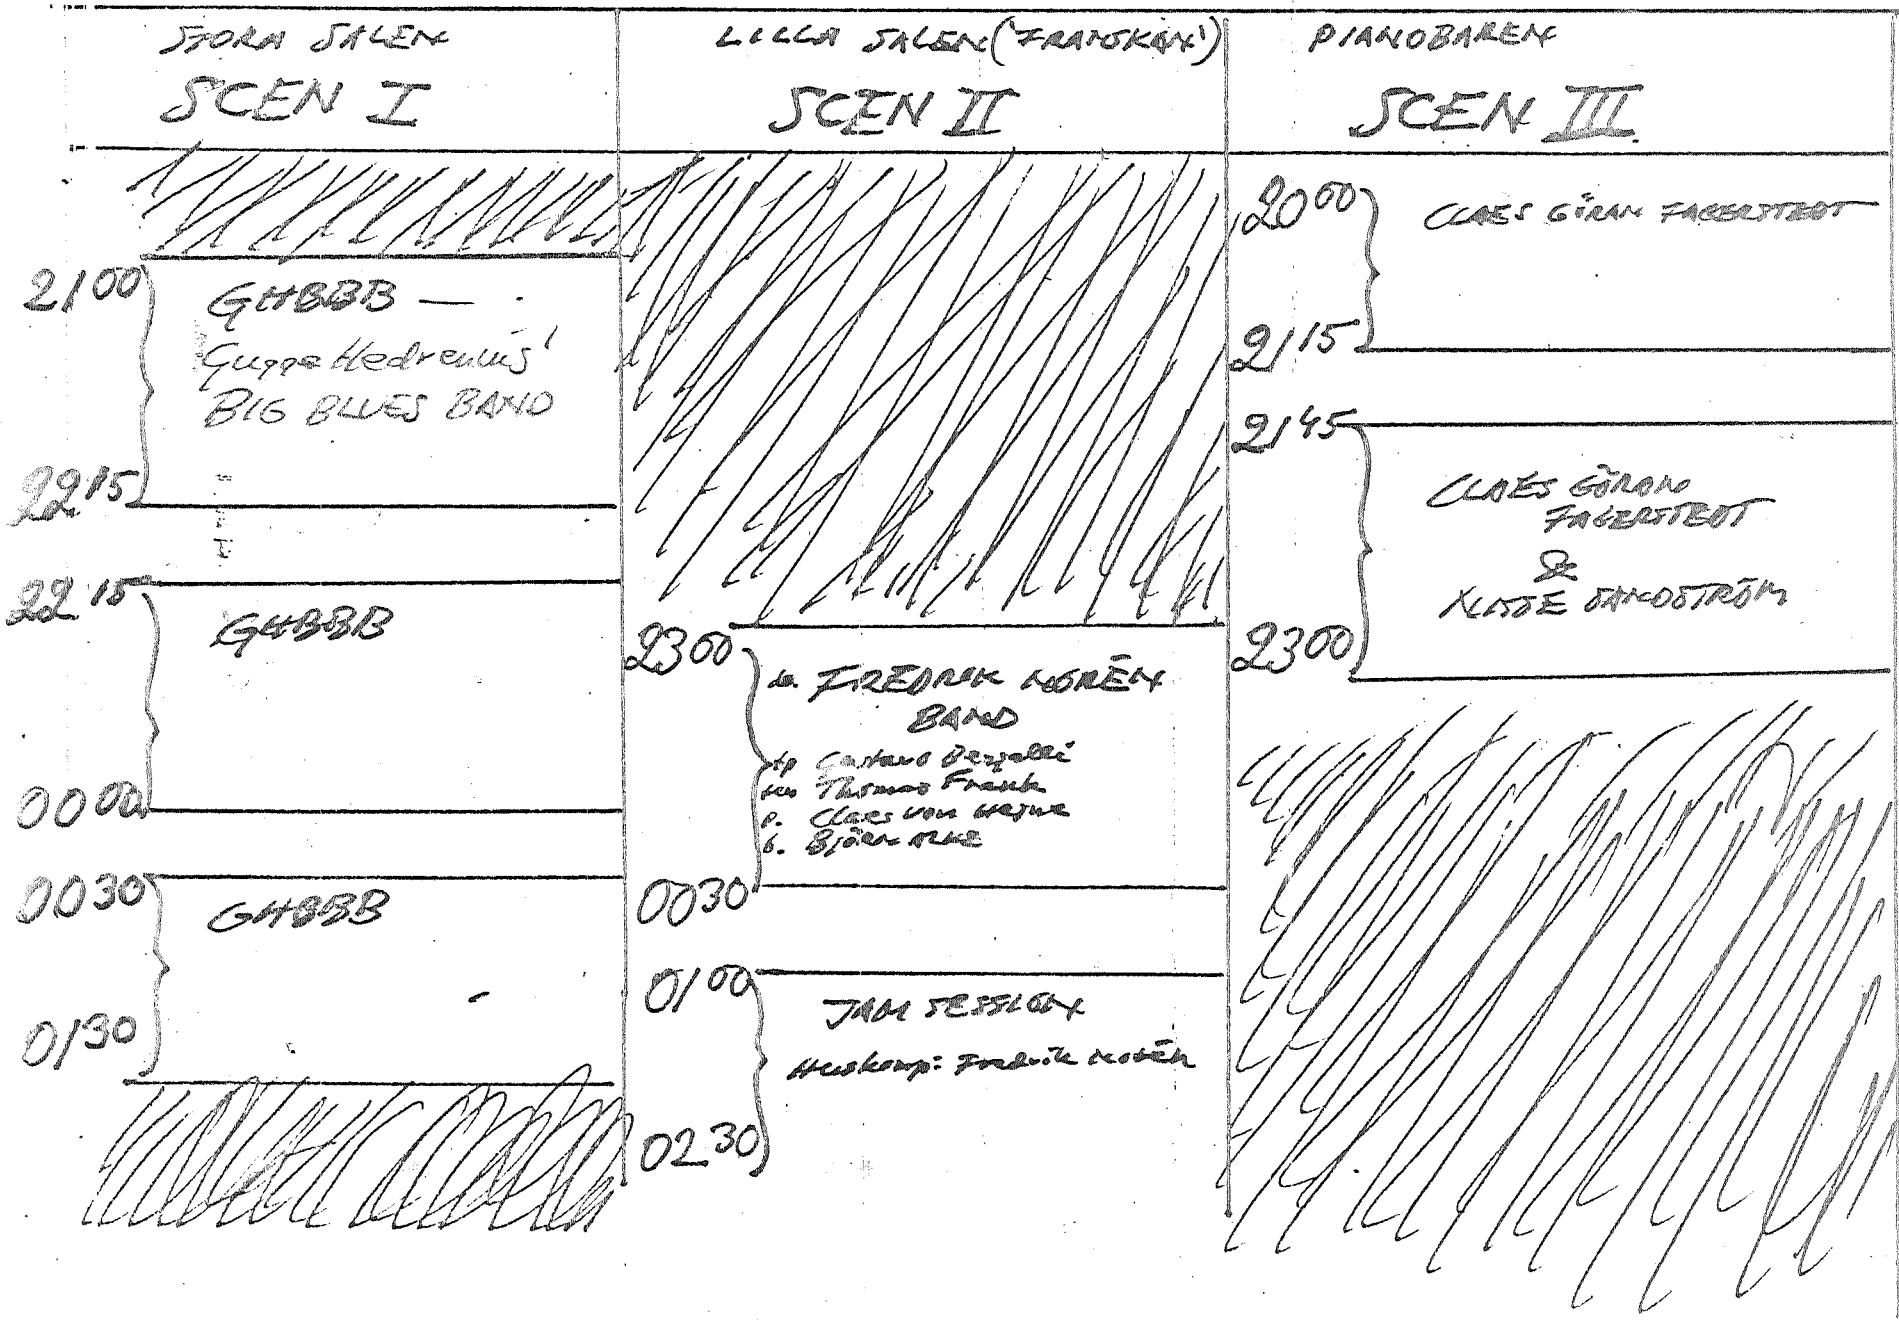 STORA SALEN
SCEN I
21 00
GHBBB —
Gugge Hedrenius'
BIG BLUES BAND
22 15
22 15
GHBBB
00 00
00 30
GHBBB
01 30
LILLA SALEN ('FRANSKAN')
SCEN II
23 00
FREDRIK NORÉN
BAND
tp Gustavo Bergalli
Thomas Franck
p. Claes von Heijne
b. Björn Alke
00 30
01 00
JAM SESSION
Huskomp: Fredrik Norén
02 30
PIANOBAREN
SCEN III
20 00
CLAES GÖRAN FAGERSTEDT
21 15
21 45
CLAES GÖRAN
FAGERSTEDT
&
NISSE SANDSTRÖM
23 00